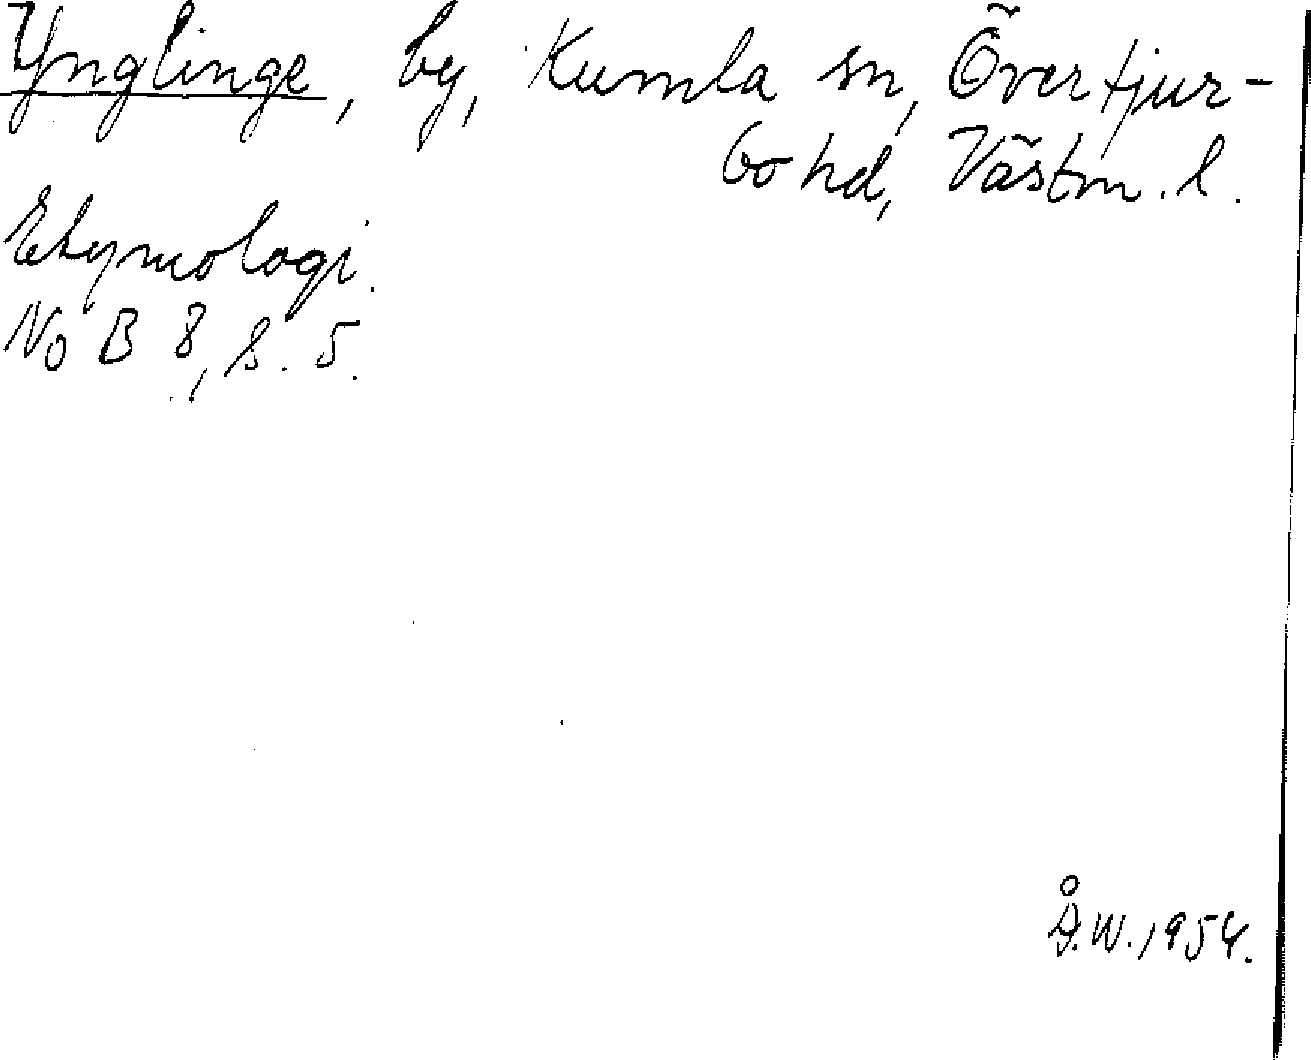 Ynglinge, by, Kumla sn, Övertjur-
bo hd, Västm. l.
Etymologi.
NoB 8, s. 5.
Å.W., 1954.